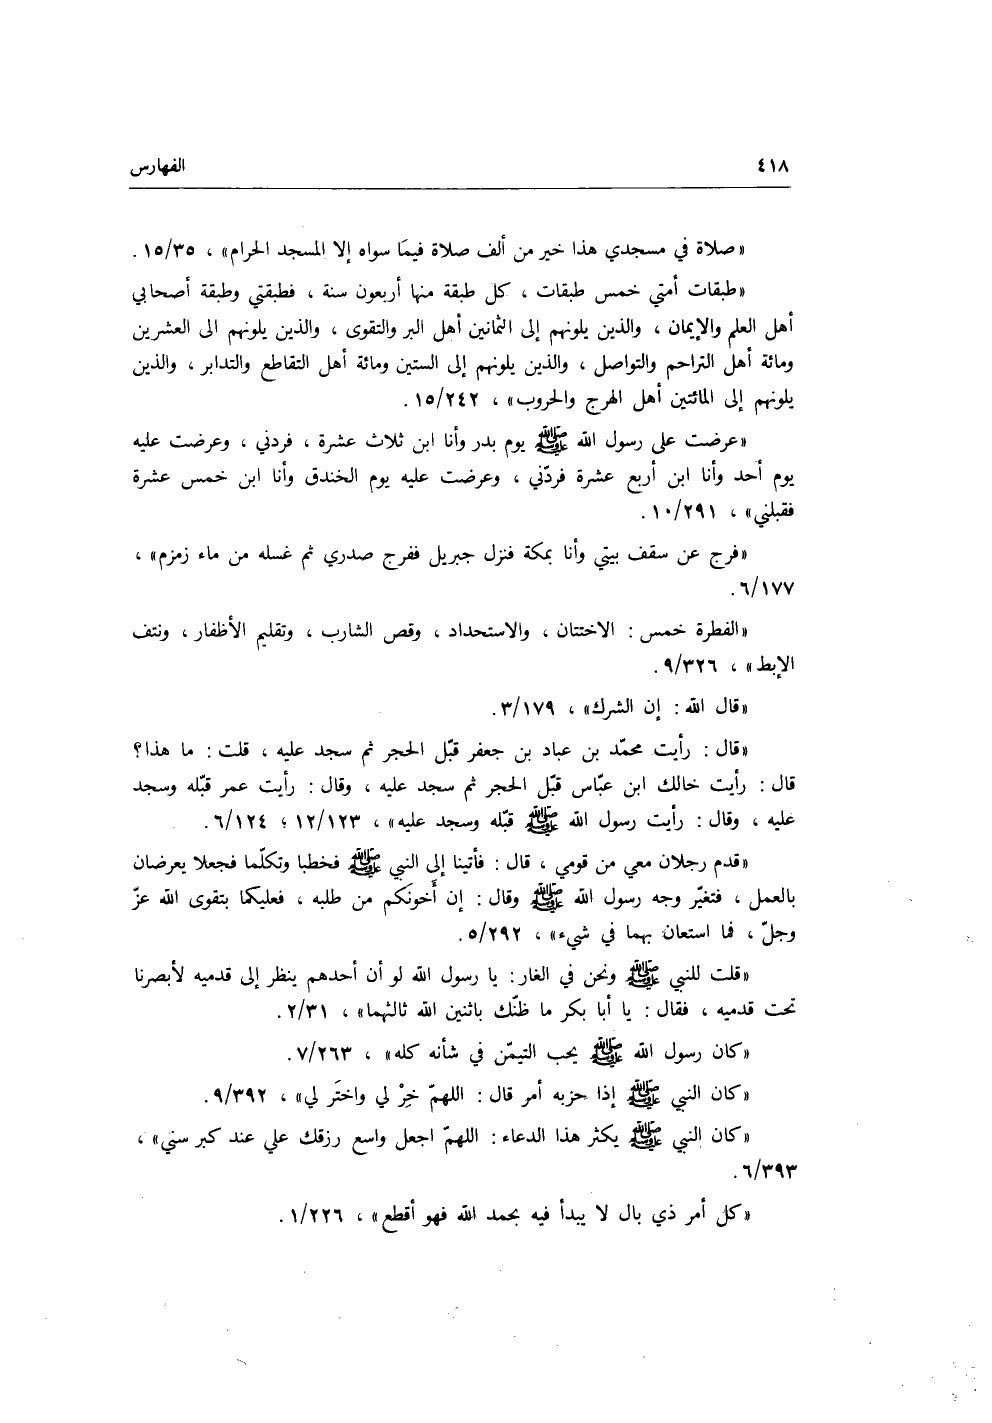 ٤١٨
الفهارس
«صلاة في مسجدي هذا خير من ألف صلاة فيمَا سواه إلا المسجد الحرام» ، ١٥/٣٥ .
«طبقات أمتي خمس طبقات ، كل طبقة منها أربعون سنة ، فطبقتي وطبقة أصحابي
أهل العلم والإيمان ، والذين يلونهم إلى الثمانين أهل البر والتقوى ، والذين يلونهم الى العشرين
ومائة أهل التراحم والتواصل ، والذين يلونهم إلى الستين ومائة أهل التقاطع والتدابر ، والذين
يلونهم إلى المائتين أهل الهرج والحروب» ، ١٥/٢٤٢ .
«عرضت على رسول الله ﷺ يوم بدر وأنا ابن ثلاث عشرة ، فردني ، وعرضت عليه
يوم أحد وأنا ابن أربع عشرة فردّني ، وعرضت عليه يوم الخندق وأنا ابن خمس عشرة
فقبلني» ، ١٠/٢٩١ .
«فرج عن سقف بيتي وأنا بمكة فنزل جبريل ففرج صدري ثم غسله من ماء زمزم» ،
٦/١٧٧ .
«الفطرة خمس : الاختتان ، والاستحداد ، وقص الشارب ، وتقليم الأظفار ، ونتف
الإبط» ، ٩/٣٢٦ .
«قال الله : إن الشرك» ، ٣/١٧٩ .
«قال : رأيت محمّد بن عباد بن جعفر قبّل الحجر ثم سجد عليه ، قلت : ما هذا؟
قال : رأيت خالك ابن عبّاس قبّل الحجر ثم سجد عليه ، وقال : رأيت عمر قبّله وسجد
عليه ، وقال : رأيت رسول الله ﷺ قبّله وسجد عليه» ، ١٢/١٢٣ ؛ ٦/١٢٤ .
«قدم رجلان معي من قومي ، قال : فأتينا إلى النبي ﷺ فخطبا وتكلّما فجعلا يعرضان
بالعمل ، فتغيّر وجه رسول الله ﷺ وقال : إن أَخونَكم من طلبه ، فعليكما بتقوى الله عزّ
وجلّ ، فما استعان بهما في شيء» ، ٥/٢٩٢ .
«قلت للنبي ﷺ ونحن في الغار : يا رسول الله لو أن أحدهم ينظر إلى قدميه لأبصرنا
تحت قدميه ، فقال : يا أبا بكر ما ظنّك باثنين الله ثالثهما» ، ٢/٣١ .
«كان رسول الله ﷺ يحب التيمّن في شأنه كله» ، ٧/٢٦٣ .
«كان النبي ﷺ إذا حزبه أمر قال : اللهمّ خِرْ لي واختَر لي» ، ٩/٣٩٢ .
«كان النبي ﷺ يكثر هذا الدعاء : اللهمّ اجعل واسع رزقك علي عند كبر سني» ،
٦/٣٩٣ .
«كل أمر ذي بال لا يبدأ فيه بحمد الله فهو أقطع» ، ١/٢٢٦ .